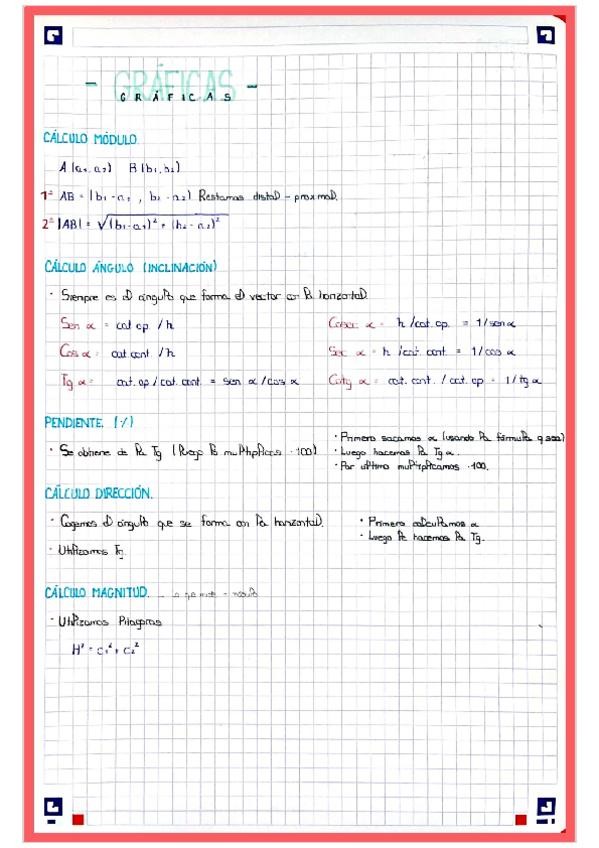 - GRÁFICAS -
GRÁFICAS
CÁLCULO MÓDULO.
A (a₁, a₂) B (b₁, b₂)
1º AB = (b₁ - a₁ , b₂ - a₂) Restamos distal - proximal.
2º |AB| = √(b₁ - a₁)² + (b₂ - a₂)²
CÁLCULO ÁNGULO (INCLINACIÓN)
· Siempre es el ángulo que forma el vector con la horizontal.
Sen α = cat op. / h
Cosec α = h / cat. op. = 1/sen α
Cos α = cat cont. / h
Sec α = h / cat. cont. = 1/cos α
Tg α = cat. op / cat. cont. = sen α / cos α
Cotg α = cat. cont. / cat. op = 1/tg α
PENDIENTE.
· Se obtiene de la Tg (luego la multiplicas · 100)
· Primero sacamos α (usando la fórmula q sea)
· Luego hacemos la Tg α.
· Por último multiplicamos · 100.
CÁLCULO DIRECCIÓN.
· Cogemos el ángulo que se forma con la horizontal.
· Utilizamos Tg.
· Primero calculamos α
· Luego le hacemos la Tg.
CÁLCULO MAGNITUD.
· Utilizamos Pitágoras
H² = c₁² + c₂²